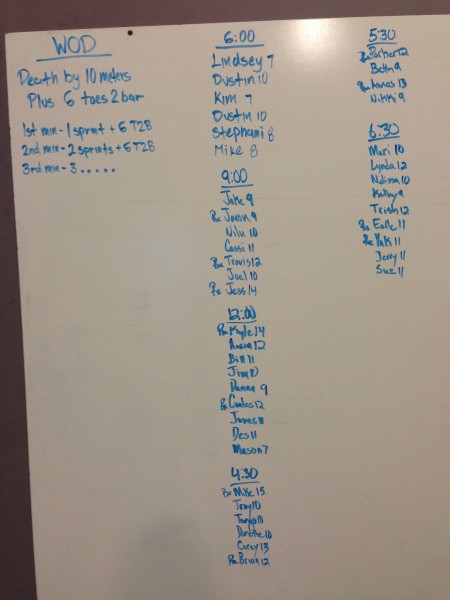 WOD
Death by 10 meters
Plus 6 toes 2 bar
1st min - 1 sprint + 6 T2B
2nd min - 2 sprints + 6 T2B
3rd min - 3 . . . . .
6:00
Lindsey 7
Dustin 10
Kim 7
Dustin 10
Stephani 8
Mike 8
9:00
Jake 9
Rx Jason 9
Nilu 10
Cassi 11
Rx Travis 12
Joel 10
Rx Jess 14
12:00
Rx Kyle 14
12
Bill 11
Jim 10
Danna 9
Rx Coates 12
James 11
Des 11
Mason 7
4:30
Rx Mike 15
Troy 10
10
Corey 13
Rx Brian 12
5:30
Rx Parker 12
Beth 9
Rx 13
Nikki 9
6:30
Mari 10
Lynda 12
Ndina 10
Kathy 9
Trish 12
Rx Earle 11
Rx 11
Jerry 11
Suz 11